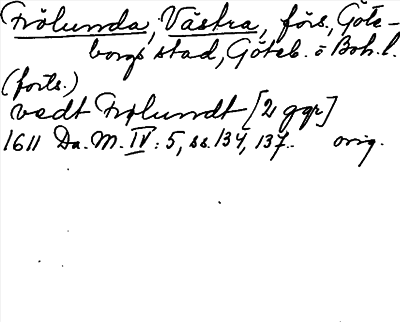 Frölunda, Västra, förs., Göte-
borgs stad, Göteb. o Boh. l.
(forts.)
vedt Frølundt [2 ggr]
1611 Da. M. IV: 5, ss. 134, 137. orig.